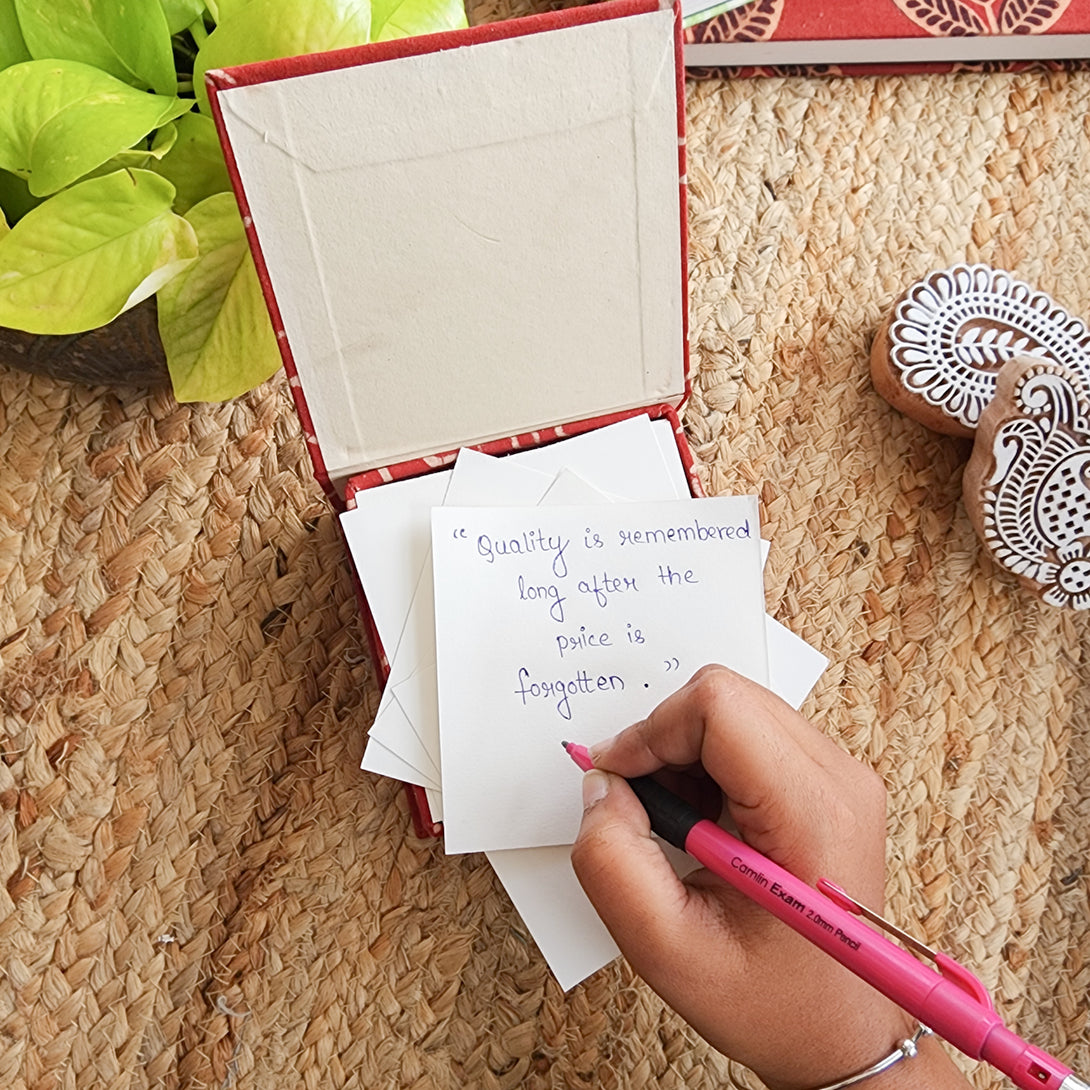 “Quality is remembered
long after the
price is
forgotten.”
Camlin Exam 2.0mm Pencil